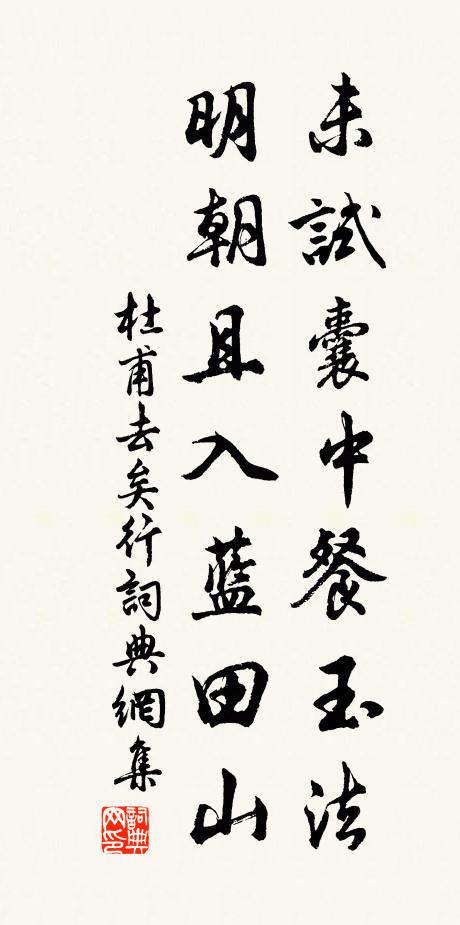 未試囊中餐玉法
明朝且入藍田山
杜甫去矣行詞典網集
詞典网印